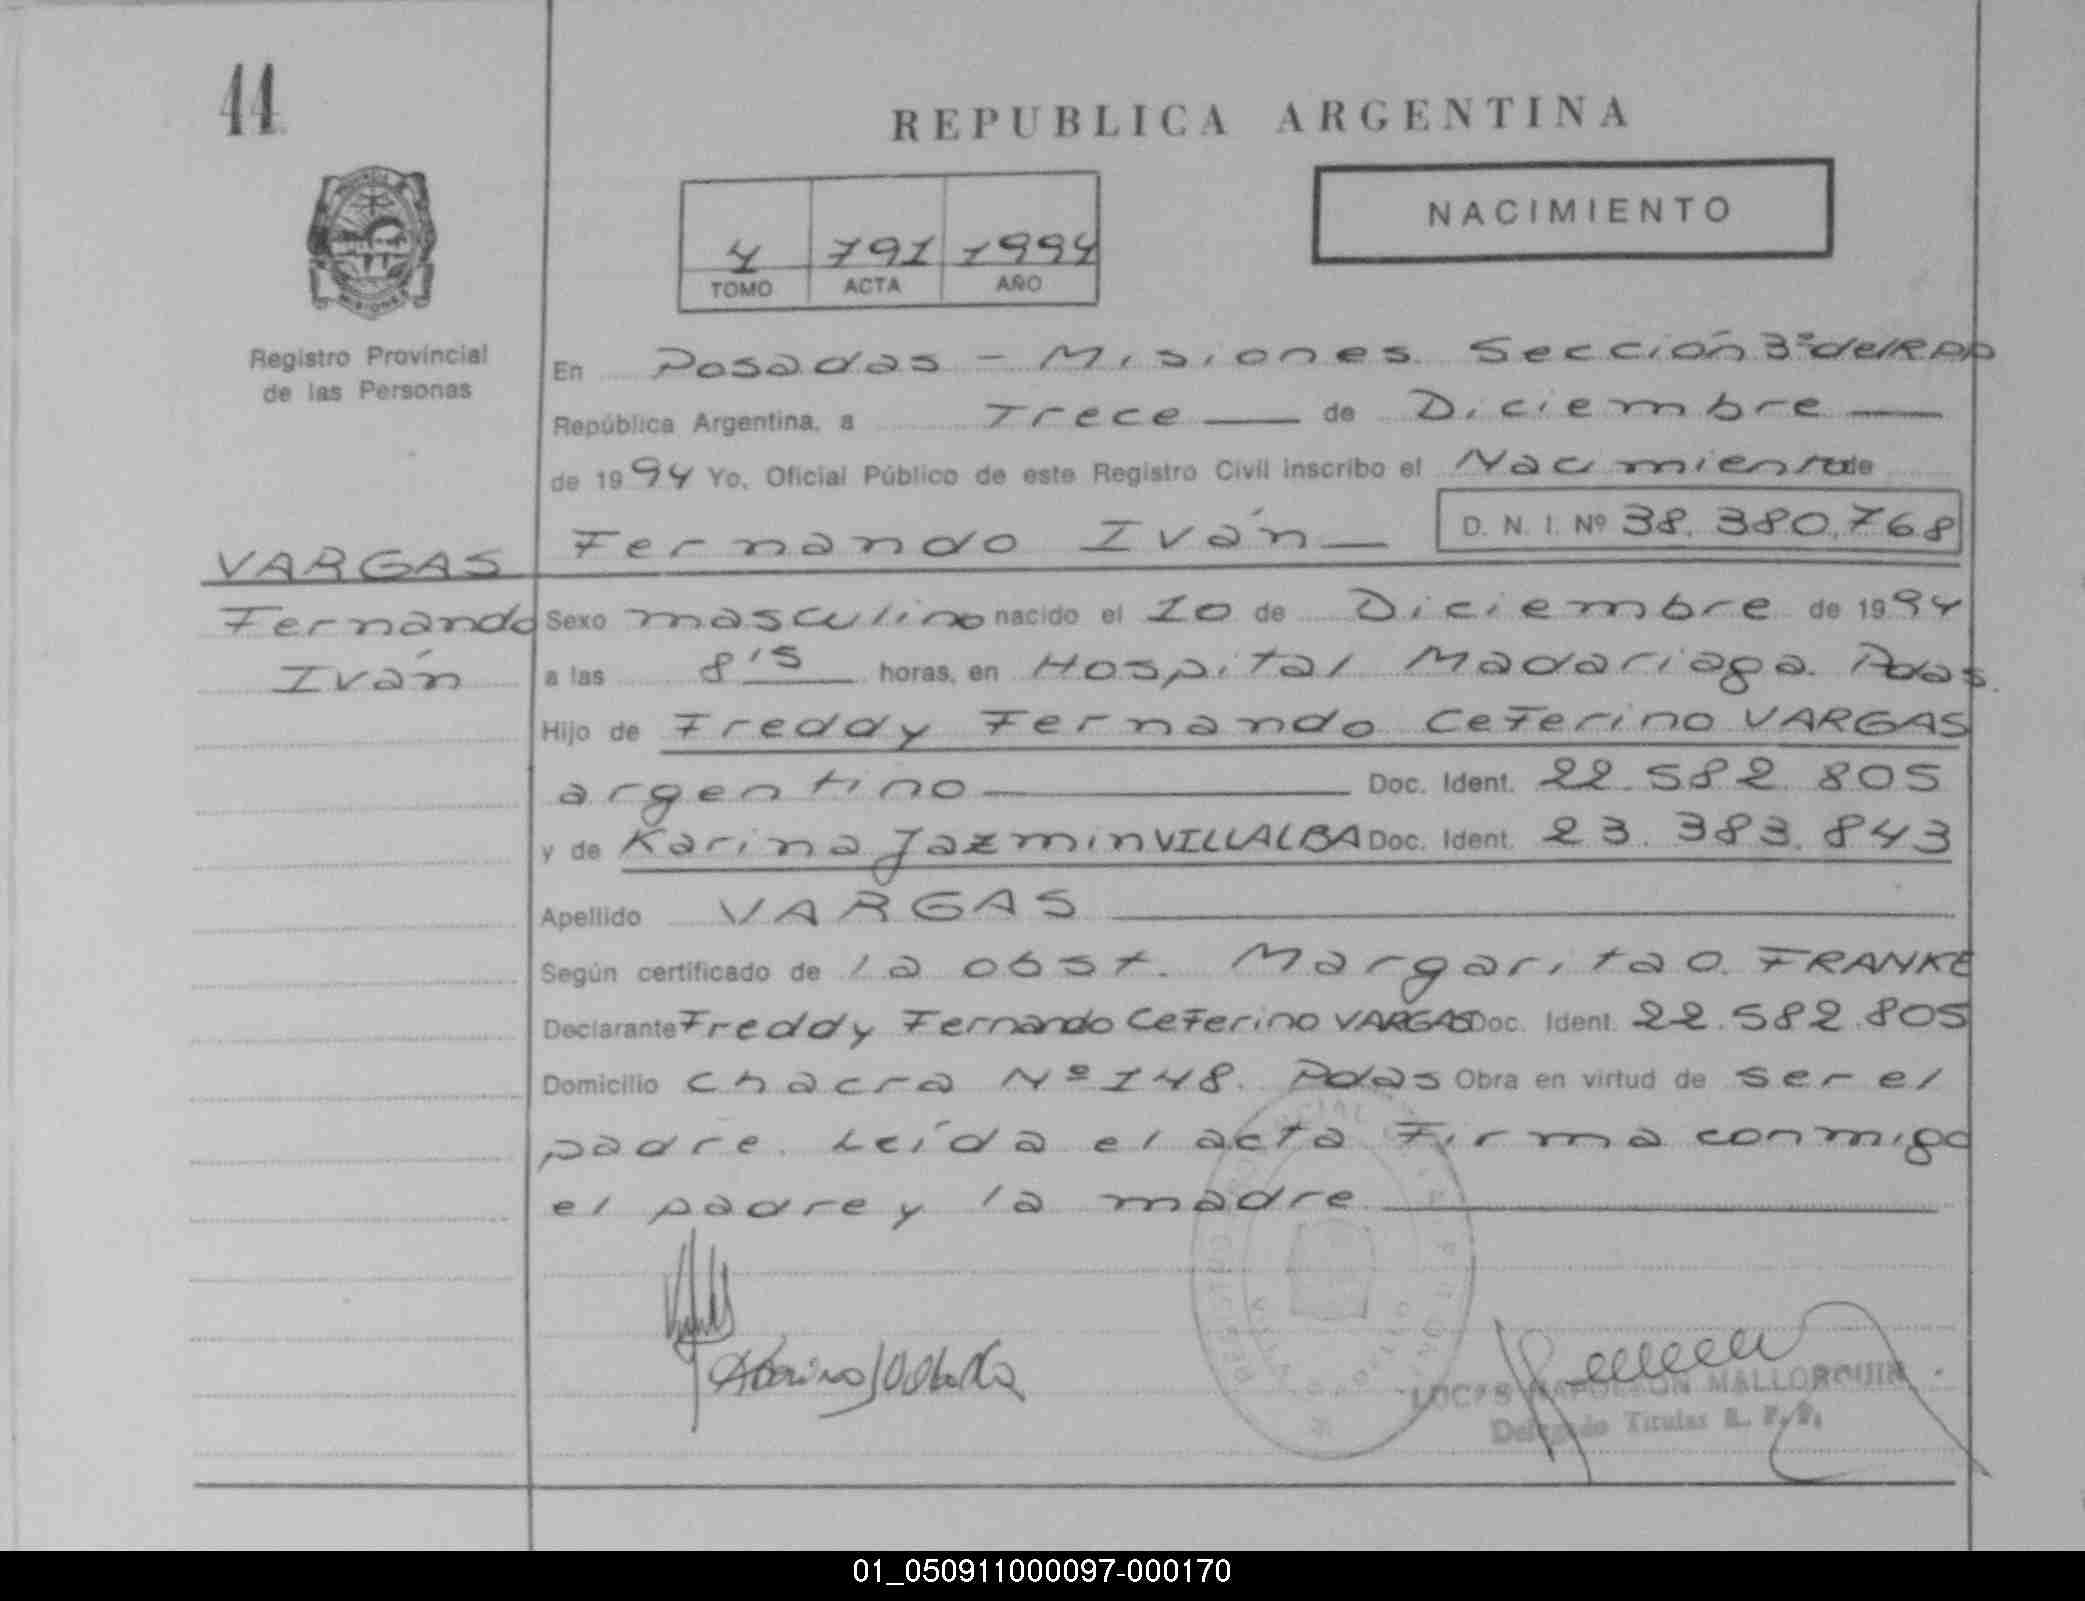 44
REPUBLICA ARGENTINA
NACIMIENTO
4 791 1994
TOMO ACTA AÑO
MISIONES
Registro Provincial
de las Personas
En Posadas - Misiones. Sección 3ª del RPP
República Argentina, a Trece de Diciembre
de 1994 Yo, Oficial Público de este Registro Civil inscribo el Nacimiento de
Fernando Iván D. N. I. Nº 38.380.768
VARGAS
Fernando
Iván
Sexo masculino nacido el 10 de Diciembre de 1994
a las 8'15 horas, en Hospital Madariaga. Pdas.
Hijo de Freddy Fernando Ceferino VARGAS
argentino Doc. Ident. 22.582.805
y de Karina Jazmin VILLALBA Doc. Ident. 23.383.843
Apellido VARGAS
Según certificado de la obst. Margarita O. FRANKE
Declarante Freddy Fernando Ceferino VARGAS Doc. Ident. 22.582.805
Domicilio chacra Nº 148. Pdas Obra en virtud de ser el
padre. Leída el acta Firma conmigo
el padre y la madre
LUCAS NAPOLEON MALLORQUIN
Delegado Titular R. P. P.
01_050911000097-000170